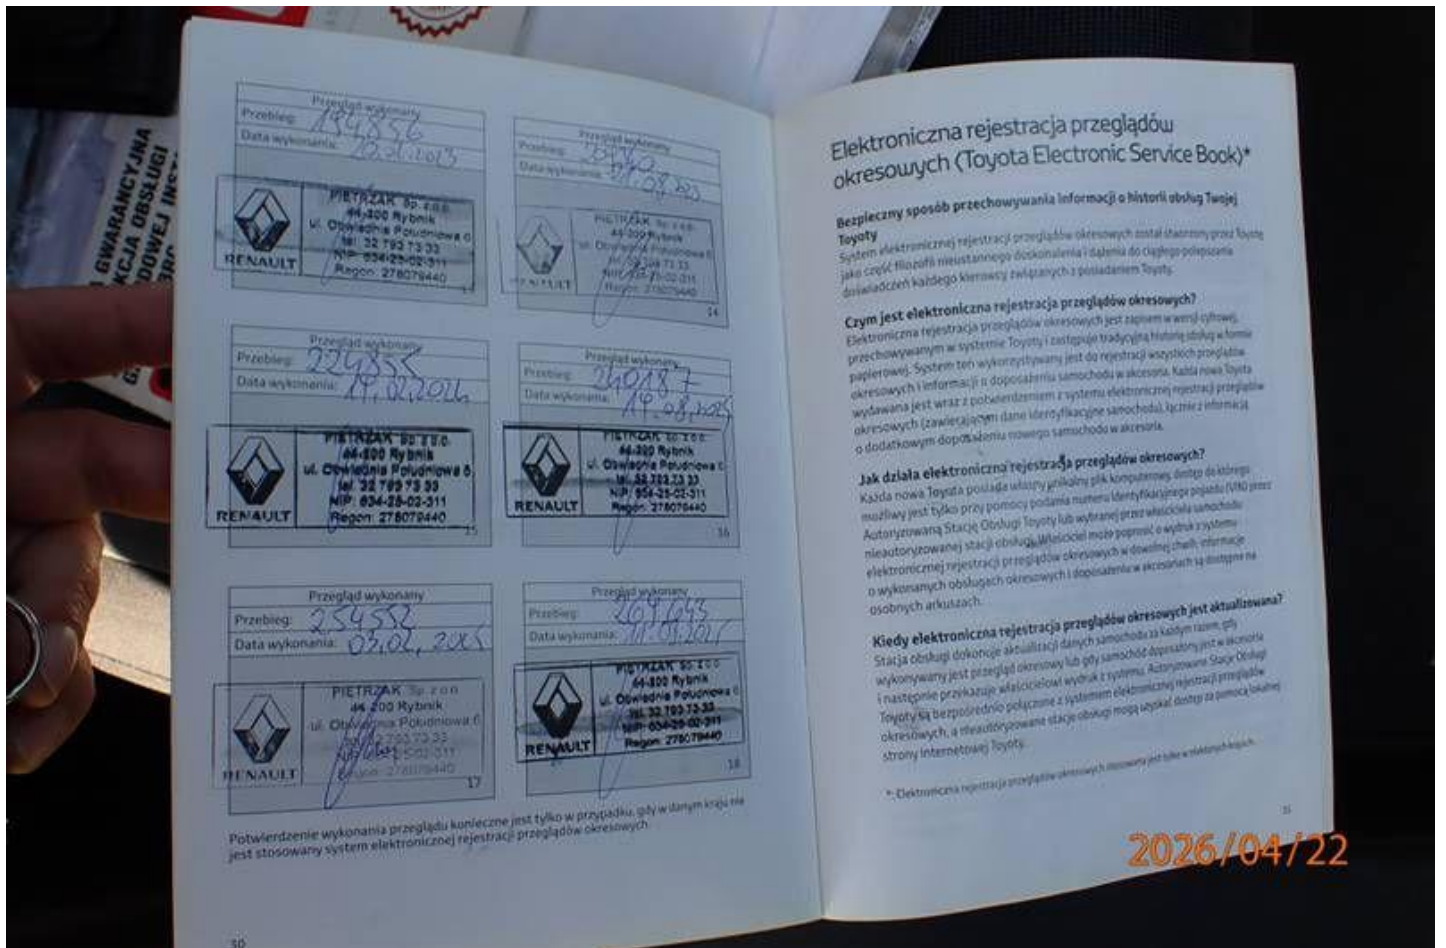 GWARANCYJNA
KCJA OBSŁUGI
DOWEJ INST
Przegląd wykonany
Przebieg: 194856
Data wykonania:
RENAULT
PIETRZAK Sp. z o.o.
44-200 Rybnik
ul. Obwiednia Południowa 6
tel. 32 793 73 33
NIP: 634-25-02-311
Regon: 278079440
Przegląd wykonany
Przebieg:
Data wykonania:
RENAULT
PIETRZAK Sp. z o.o.
44-200 Rybnik
ul. Obwiednia Południowa 6
Regon: 278079440
14
Przegląd wykonany
Przebieg: 224855
Data wykonania: 19.02.2024
RENAULT
PIETRZAK Sp. z o.o.
44-200 Rybnik
ul. Obwiednia Południowa 6
tel. 32 793 73 33
NIP: 634-25-02-311
Regon: 278079440
15
Przegląd wykonany
Przebieg: 240187
Data wykonania:
RENAULT
PIETRZAK Sp. z o.o.
44-200 Rybnik
ul. Obwiednia Południowa 6
tel. 32 793 73 33
NIP: 634-25-02-311
Regon: 278079440
16
Przegląd wykonany
Przebieg: 254552
Data wykonania: 03.02.2025
RENAULT
PIETRZAK Sp. z o.o.
44-200 Rybnik
ul. Obwiednia Południowa 6
Regon: 278079440
17
Przegląd wykonany
Przebieg: 269643
Data wykonania:
RENAULT
PIETRZAK Sp. z o.o.
44-200 Rybnik
ul. Obwiednia Południowa 6
tel. 32 793 73 33
NIP: 634-25-02-311
Regon: 278079440
18
Potwierdzenie wykonania przeglądu konieczne jest tylko w przypadku, gdy w danym kraju nie
jest stosowany system elektronicznej rejestracji przeglądów okresowych.
50
Elektroniczna rejestracja przeglądów
okresowych (Toyota Electronic Service Book)*
Bezpieczny sposób przechowywania informacji o historii obsług Twojej
Toyoty
System elektronicznej rejestracji przeglądów okresowych został stworzony przez Toyotę
jako część filozofii nieustannego doskonalenia i dążenia do ciągłego polepszania
doświadczeń każdego kierowcy związanych z posiadaniem Toyoty.
Czym jest elektroniczna rejestracja przeglądów okresowych?
Elektroniczna rejestracja przeglądów okresowych jest zapisem w wersji cyfrowej,
przechowywanym w systemie Toyoty i zastępuje tradycyjną historię obsług w formie
papierowej. System ten wykorzystywany jest do rejestracji wszystkich przeglądów
okresowych i informacji o doposażeniu samochodu w akcesoria. Każda nowa Toyota
wydawana jest wraz z potwierdzeniem z systemu elektronicznej rejestracji przeglądów
okresowych (zawierającym dane identyfikacyjne samochodu), łącznie z informacją
o dodatkowym doposażeniu nowego samochodu w akcesoria.
Jak działa elektroniczna rejestracja przeglądów okresowych?
Każda nowa Toyota posiada własny unikalny plik komputerowy, dostęp do którego
możliwy jest tylko przy pomocy podania numeru identyfikacyjnego pojazdu (VIN) przez
Autoryzowaną Stację Obsługi Toyoty lub wybranej przez właściciela samochodu
nieautoryzowanej stacji obsługi. Właściciel może poprosić o wydruk z systemu
elektronicznej rejestracji przeglądów okresowych w dowolnej chwili; informacje
o wykonanych obsługach okresowych i doposażeniu w akcesoriach są dostępne na
osobnych arkuszach.
Kiedy elektroniczna rejestracja przeglądów okresowych jest aktualizowana?
Stacja obsługi dokonuje aktualizacji danych samochodu za każdym razem, gdy
wykonywany jest przegląd okresowy lub gdy samochód doposażony jest w akcesoria
i następnie przekazuje właścicielowi wydruk z systemu. Autoryzowane Stacje Obsługi
Toyoty są bezpośrednio połączone z systemem elektronicznej rejestracji przeglądów
okresowych, a nieautoryzowane stacje obsługi mogą uzyskać dostęp za pomocą lokalnej
strony internetowej Toyoty.
*: Elektroniczna rejestracja przeglądów okresowych stosowana jest tylko w niektórych krajach.
2026/04/22